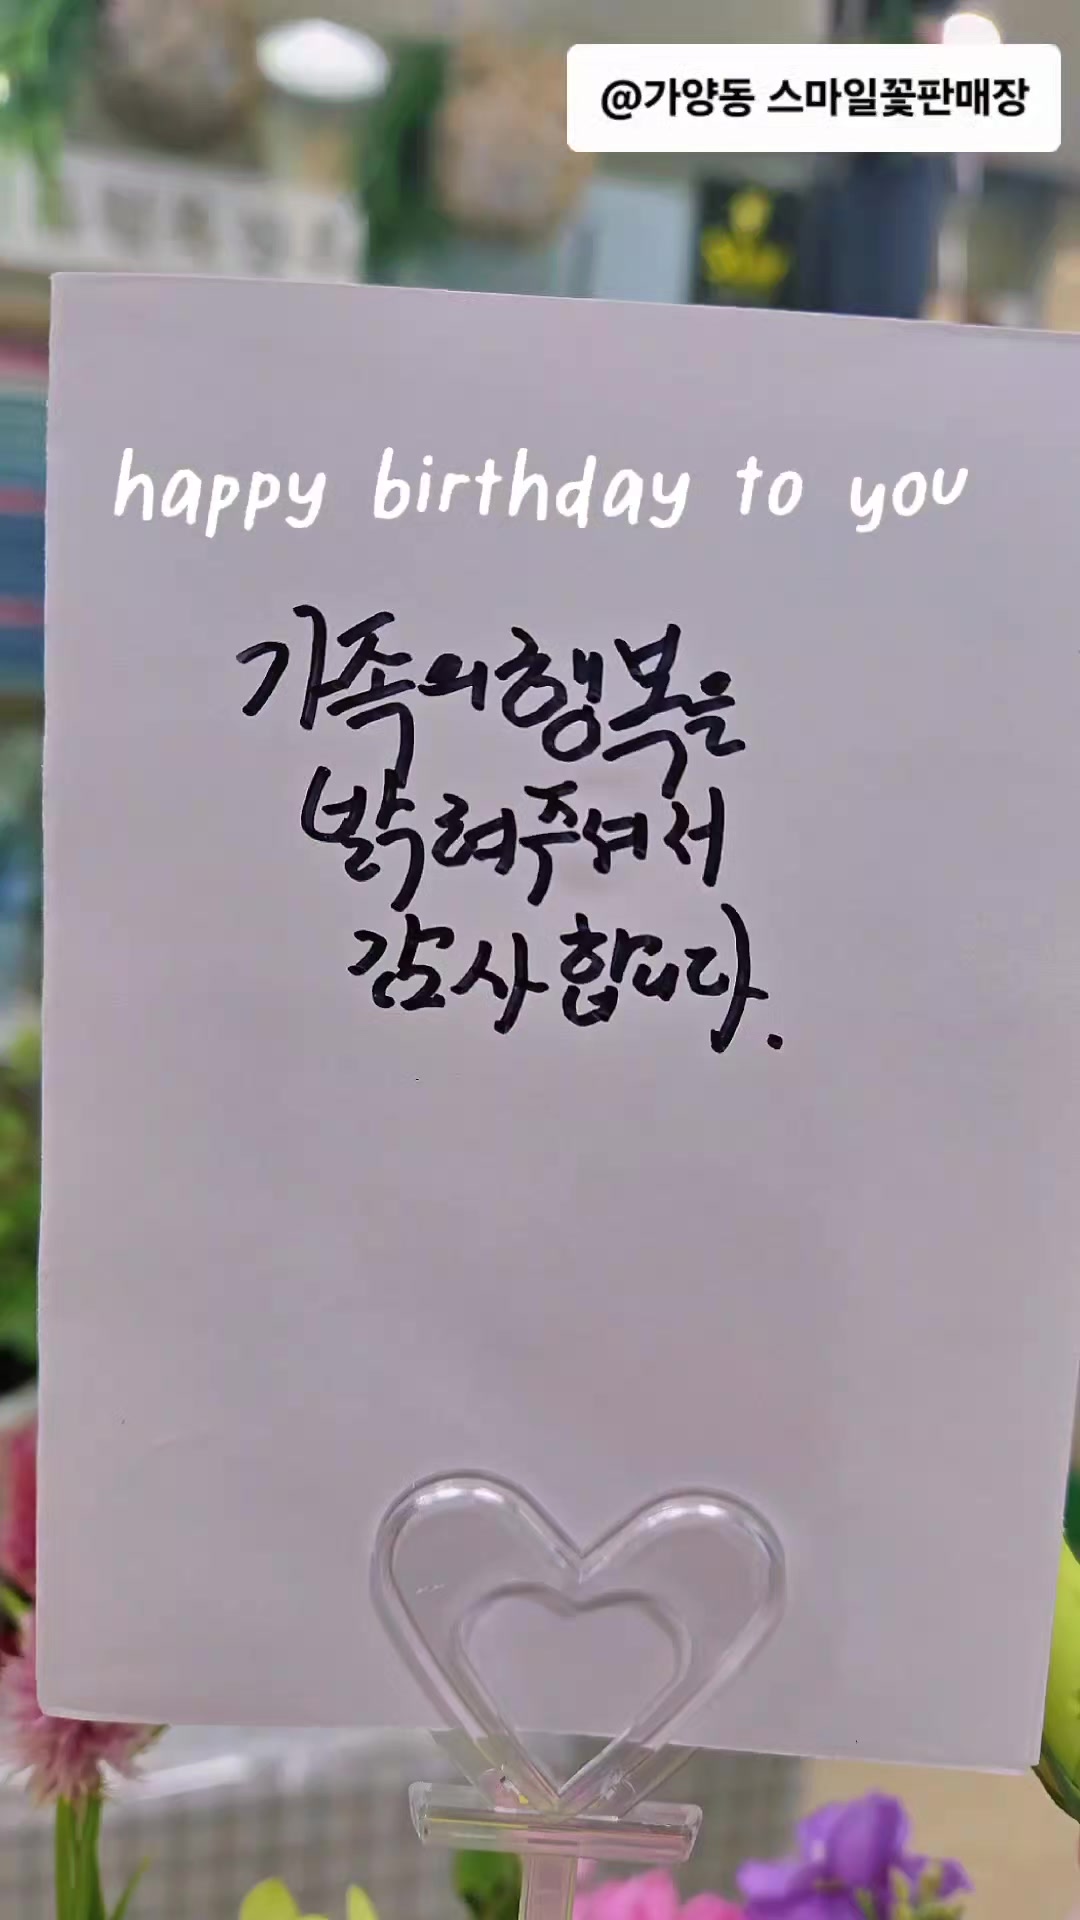 @가양동 스마일꽃판매장
happy birthday to you
가족의 행복을
밝혀주셔서
감사합니다.